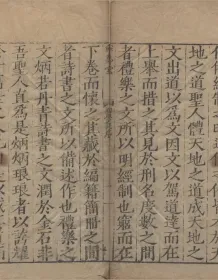 地之道聖人體天地之道成天地之
文出道以爲文因文以駕道達而在
上舉而措之其見於刑名度數之間
者禮樂之文所以明經制也窮而在
下卷而懷之其藏於編籍簡冊之間
者詩書之文所以備述作也禮樂之
文炳若丹青詩書之文潤於金石非
吾聖人直爲是炳炳琅琅者以誇耀